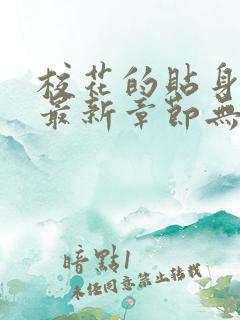 校花的貼身
最新章節無
暗點1
未經同意禁止转載